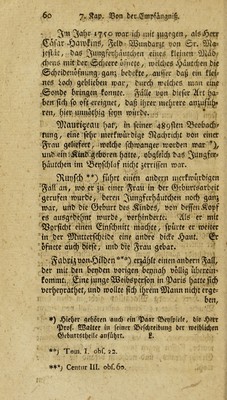 60 7. Kap. Von der Empfängniß.
Im Jahr 1750 war ich mit zugegen, als Herr
Cäsar Hawkins, Feld-Wundarzt von Sr. Ma-
jestät, das Jungferhäutchen eines kleinen Mäd-
chens mit der Scheere öfnete, welches Häutchen die
Scheidenöfnung ganz bedekte, außer daß ein klei-
nes Loch geblieben war, durch welches man eine
Sonde bringen konnte. Fälle von dieser Art ha-
ben sich so oft ereignet, daß ihrer mehrere anzufüh-
ren, hier unnöthig seyn würde.
Mauriçeau hat, in seiner 489sten Beobach-
tung, eine sehr merkwürdige Nachricht von einer
Frau geliefert, welche schwanger worden war *),
und ein Kind geboren hatte, obgleich das Jungfer-
häutchen im Beyschlaf nicht zerrissen war.
Ruysch **) führt einen andern merkwürdigen
Fall an, wo er zu einer Frau in der Geburtsarbeit
gerufen wurde, deren Jungferhäutchen noch ganz
war, und die Geburt des Kindes, von dessen Kopf
es ausgedehnt wurde, verhinderte. Als er mit
Vorsicht einen Einschnitt machte, spürte er weiter
in der Mutterscheide eine andre dicke Haut. Er
öfnete auch diese, und die Frau gebar.
Fabriz von Hilden ***) erzählt einen andern Fall,
der mit den beyden vorigen beynah völlig überein-
kommt. Eine junge Weibsperson in Paris hatte sich
verheyrathet, und wollte sich ihrem Mann nicht erge-
ben,
*) Hieher gehören auch ein Paar Beyspiele, die Herr
Prof. Walter in seiner Beschreibung der weiblichen
Geburtstheile anführt. L.
**) Tom. I. obs. 22.
***) Centur III. obs. 60.